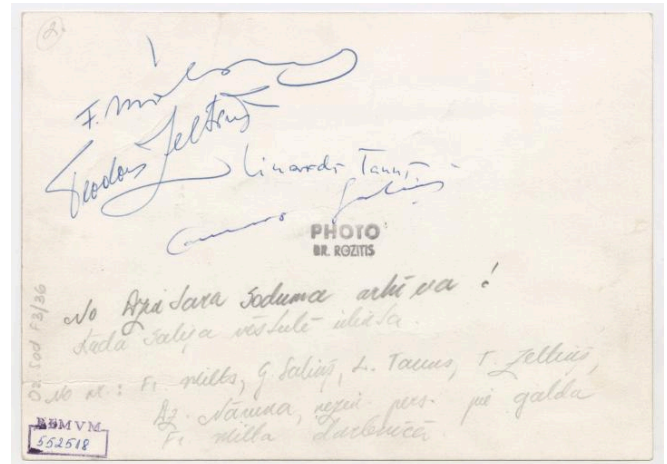 2.
F. Milts
Teodors Zeltiņš
Linards Tauns
Gunars Saliņš
PHOTO
BR. ROZITIS
No Dzintara Soduma arhīva!
Kāda Saliņa vēstulē ielikta.
No kr.: Fr. Milts, G. Saliņš, L. Tauns, T. Zeltiņš,
Dz. Nāruna, nezin. pers. pie galda
Fr. Milta darbnīcā.
Dz Sod F3/36
RMVM
552518